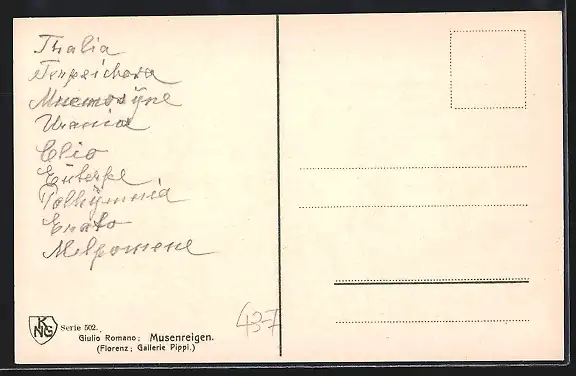 Thalia
Terpsichora
Mnemosÿne
Urania
Clio
Eüterpe
Polhÿmnia
Erato
Melpomene
KNG
Serie 502.
Giulio Romano: Musenreigen.
(Florenz; Gallerie Pippi.)
437